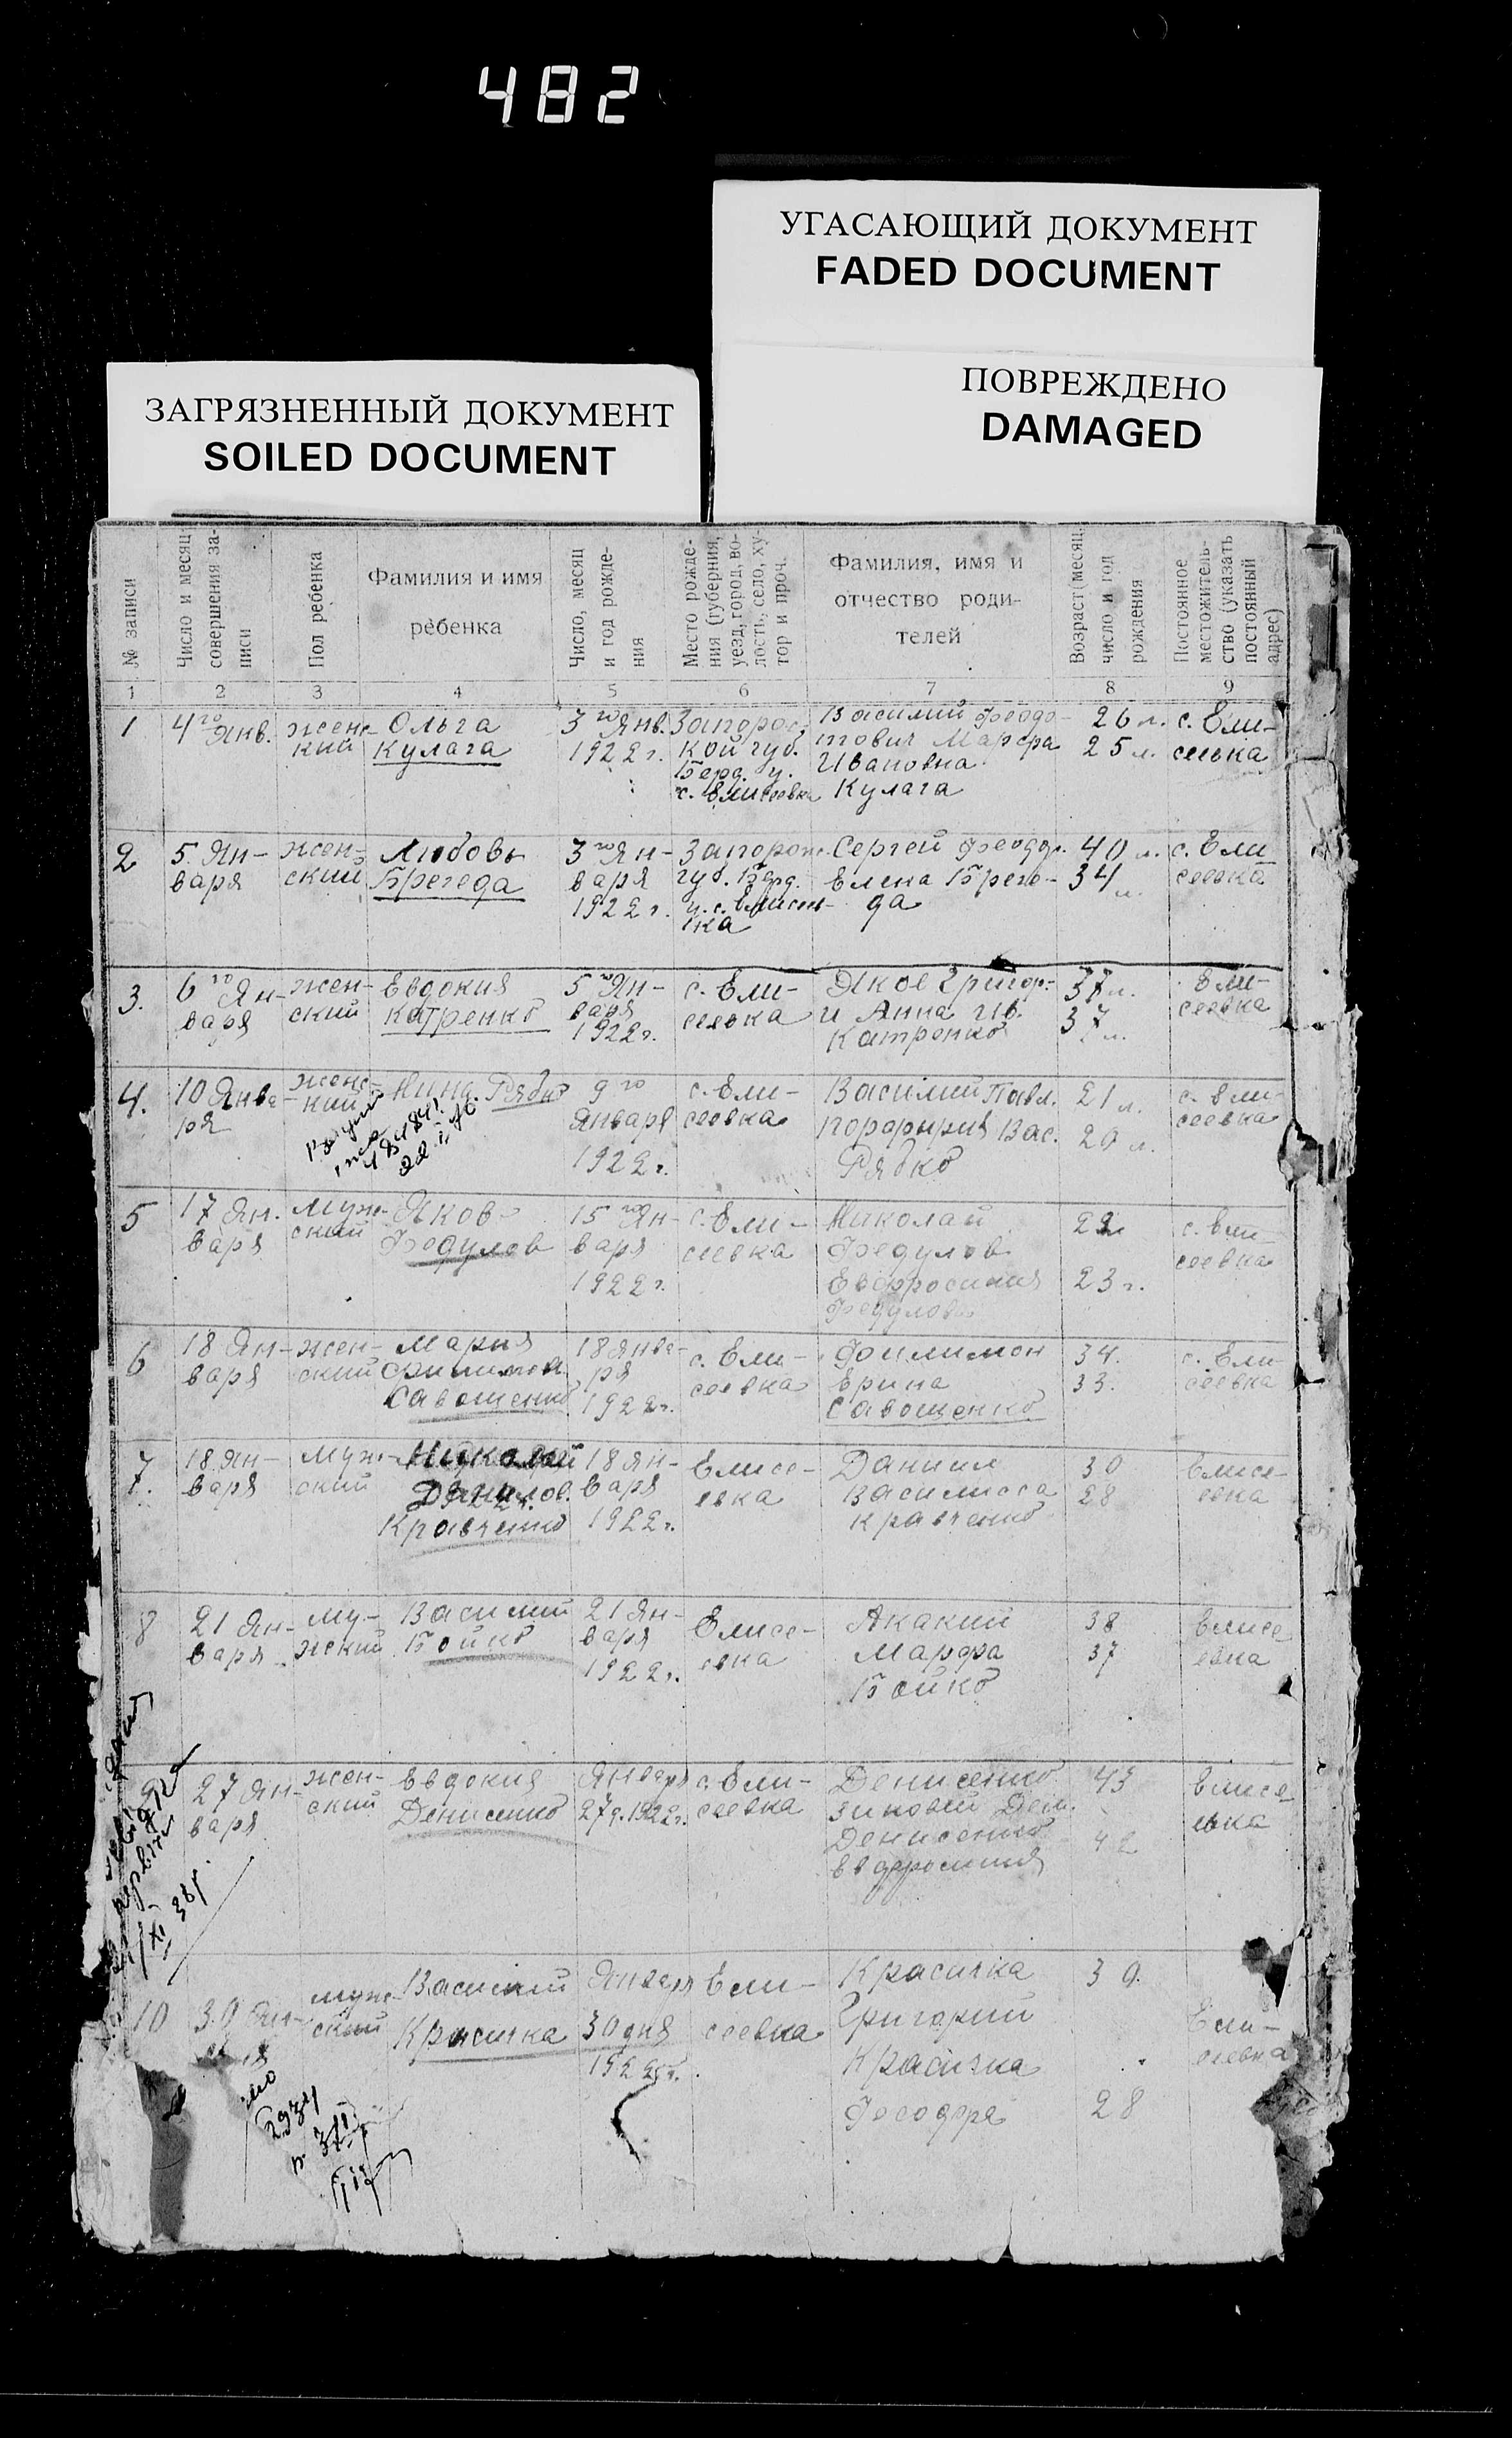 482
УГАСАЮЩИЙ ДОКУМЕНТ
FADED DOCUMENT
ПОВРЕЖДЕНО
DAMAGED
ЗАГРЯЗНЕННЫЙ ДОКУМЕНТ
SOILED DOCUMENT
№ записи
Число и месяц
совершения за-
писи
Пол ребенка
Фамилия и имя
ребенка
Число, месяц
и год рожде-
ния
Место рожде-
ния (губерния,
уезд, город, во-
лость, село, ху-
тор и проч.
Фамилия, имя и
отчество роди-
телей
Возраст (месяц,
число и год
рождения
Постоянное
местожитель-
ство (указать
постоянный
адрес)
1 2 3 4 5 6 7 8 9
1
4го Янв.
женс-
кий
Ольга
Кулага
3го Янв.
1922 г.
Запорос,
кой губ.
Берд. у.
с. Елисеевка
Василий Феодо-
тович Марфа
Ивановна
Кулага
26 л.
25 л.
с. Ели-
сеевка
2
5 Ян-
варя
жен-
ский
Любовь
Брегеда
3го Ян-
варя
1922 г.
Запорож.
губ. Берд.
у. с. Елисеев-
ка
Сергей Феодор.
Елена Бреге-
да
40 л.
34 л.
с. Ели
сеевка
3.
6го Ян-
варя
жен-
ский
Евдокия
Катренко
5го Ян-
варя
1922 г.
с. Ели-
сеевка
Яков Григор.
и Анна Ив.
Катренко
37 л.
37 л.
Ели-
сеевка
4.
10 Янва-
ря
женс-
кий
Нина Рябко
9го
Января
1922 г.
с. Ели-
сеевка
Василий Павл.
Порфирия Вас.
Рябко
21 л.
20 л.
с. Ели-
сеевка
5
17 Ян-
варя
муж-
ский
Яков
Федулов
15го Ян-
варя
1922 г.
с. Ели-
сеевка
Николай
Федулов
Евфросиния
Федулова
22
23 г.
с. Ели-
сеевка
6
18 Ян-
варя
жен-
ский
Мария
Филимон.
Савощенко
18 Янва-
ря
1922 г.
с. Ели-
сеевка
Филимон
Ерина
Савощенко
34.
33.
с. Ели-
сеевка
7.
18 Ян-
варя
муж-
ский
Николай
Данилов.
Кравченко
18 Ян-
варя
1922 г.
Елисе-
евка
Даниил
Василисса
Кравченко
30
28
Елисе-
евка
8
21 Ян-
варя
му-
жский
Василий
Бойко
21 Ян-
варя
1922 г.
Елисе-
евка
Акакий
Марфа
Бойко
38
37
Елисе
евка
9
27 Ян-
варя
жен-
ский
Евдокия
Денисенко
Января
27 д. 1922 г.
с. Ели-
сеевка
Денисенко
Зиновий Дем.
Денисенко
Евфросиния
43
42
Елисе
евка
10
30 Ян-
муж-
ский
Василий
Красичка
Января
30 дня
1922 г.
Ели-
сеевка
Красичка
Григорий
Красичка
Феодора
30.
28
Ели-
сеевка